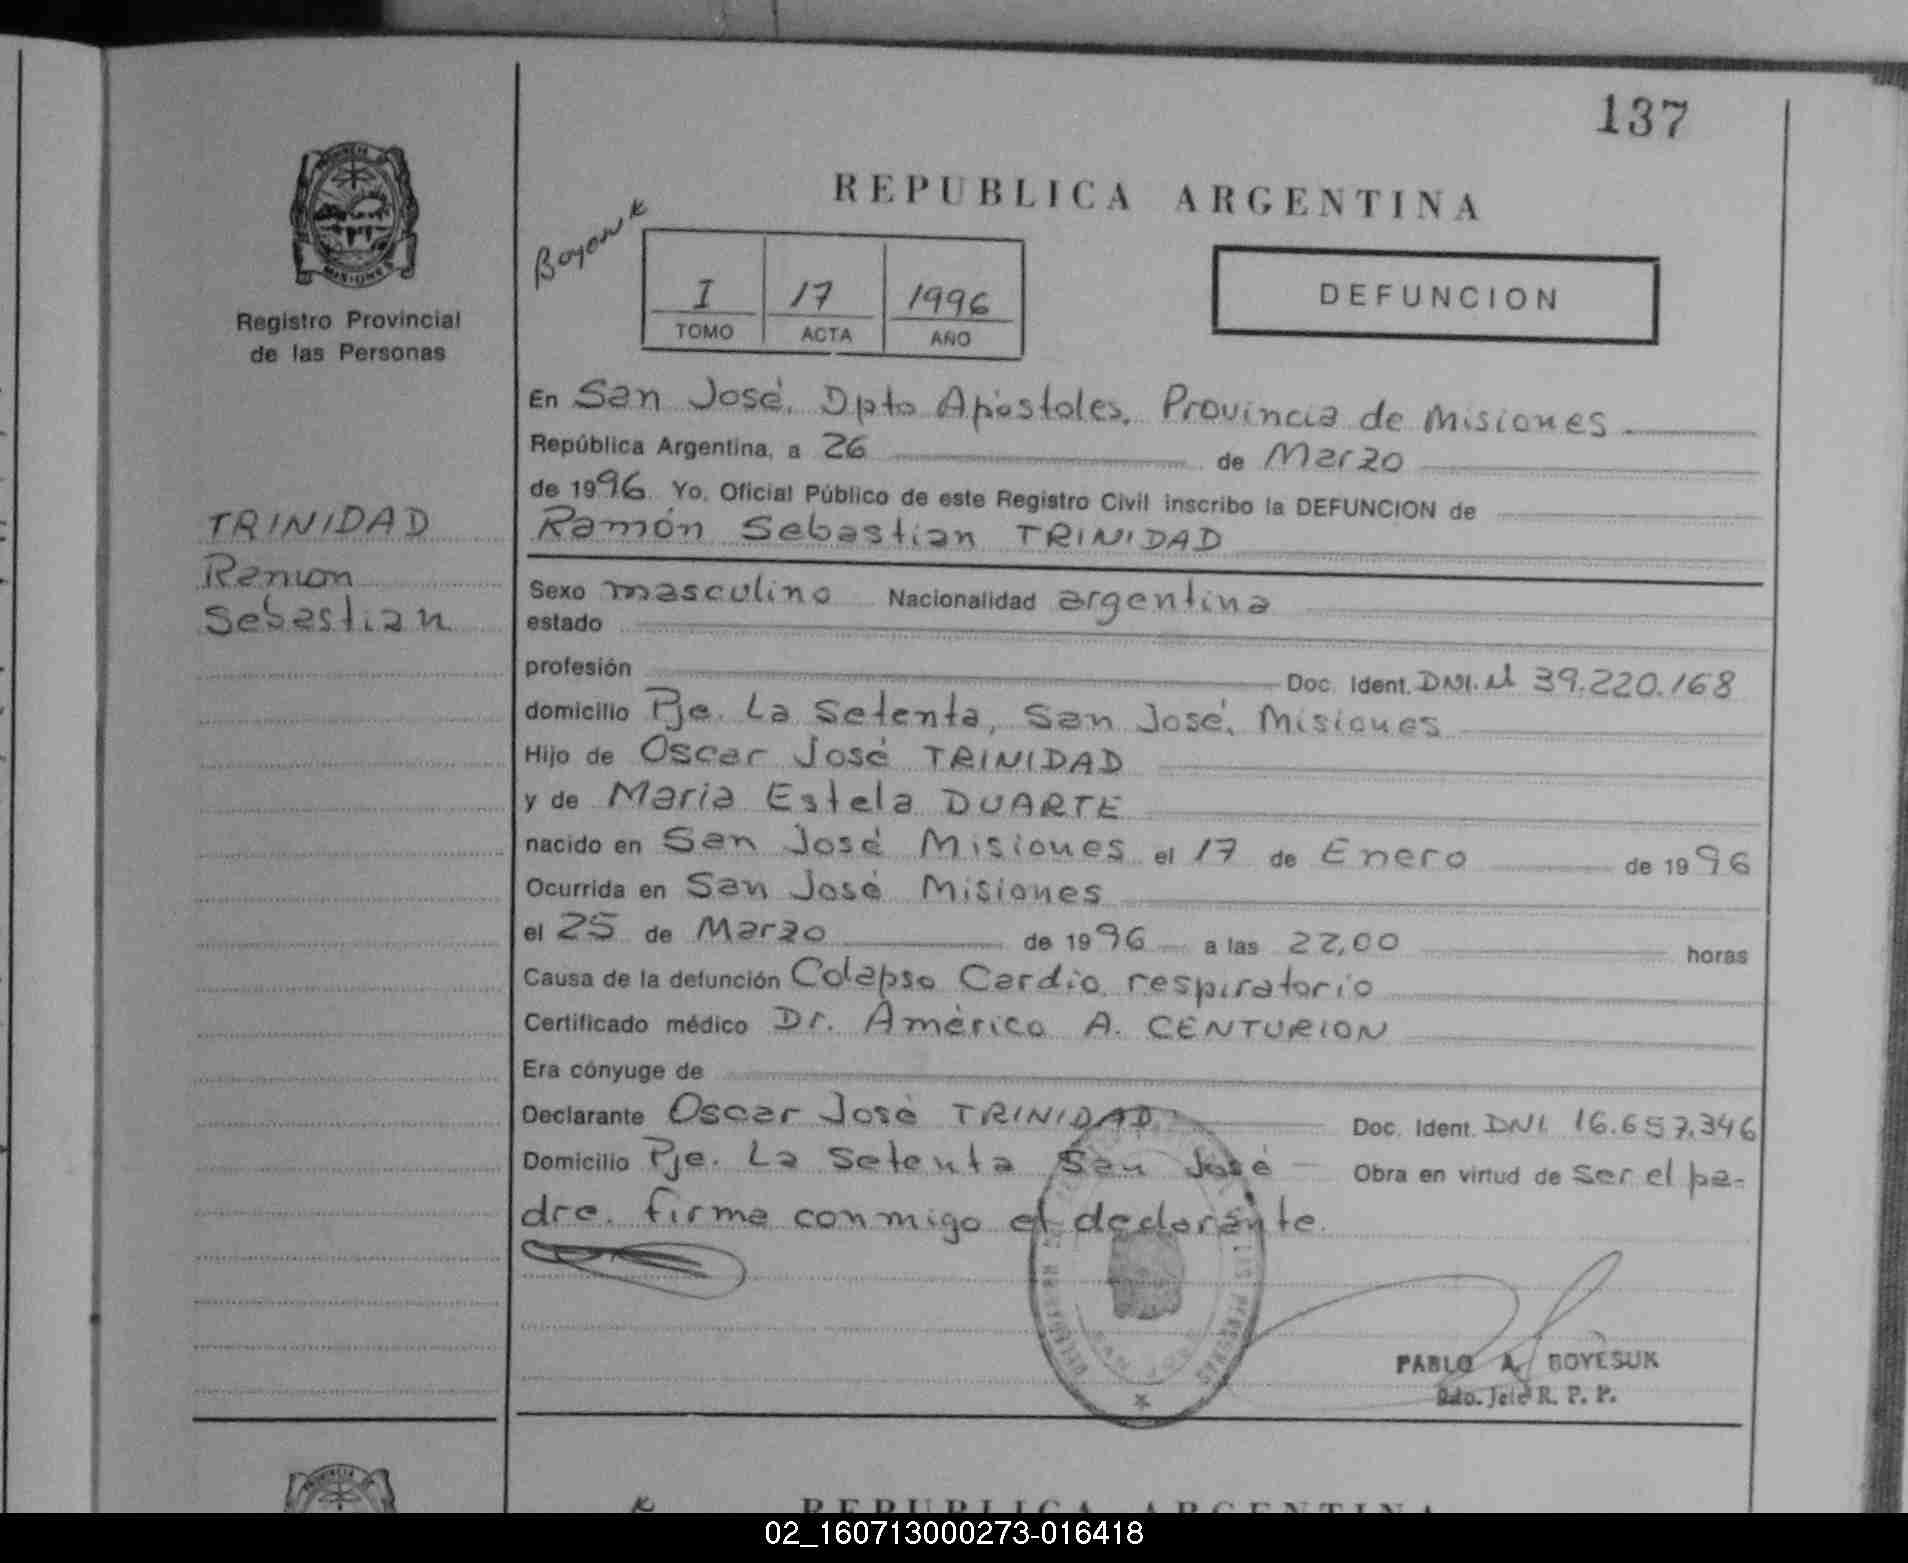 137
REPUBLICA ARGENTINA
PROVINCIA DE
MISIONES
Registro Provincial
de las Personas
I 17 1996
TOMO ACTA AÑO
DEFUNCION
TRINIDAD
Ramon
Sebastian
En San José, Dpto Apóstoles, Provincia de Misiones
República Argentina, a 26 de Marzo
de 1996. Yo, Oficial Público de este Registro Civil inscribo la DEFUNCION de
Ramón Sebastian TRINIDAD
Sexo masculino Nacionalidad argentina
estado
profesión Doc. Ident. DNI. N 39.220.168
domicilio Pje. La Setenta, San José, Misiones
Hijo de Oscar José TRINIDAD
y de Maria Estela DUARTE
nacido en San José Misiones el 17 de Enero de 1996
Ocurrida en San José Misiones
el 25 de Marzo de 1996 a las 22,00 horas
Causa de la defunción Colapso Cardio respiratorio
Certificado médico Dr. Américo A. CENTURION
Era cónyuge de
Declarante Oscar José TRINIDAD Doc. Ident. DNI. 16.657.346
Domicilio Pje. La Setenta San José Obra en virtud de ser el pa-
dre. firma conmigo el declarante.
PABLO A. BOYESUK
R. P. P.
REPUBLICA ARGENTINA
02_160713000273-016418